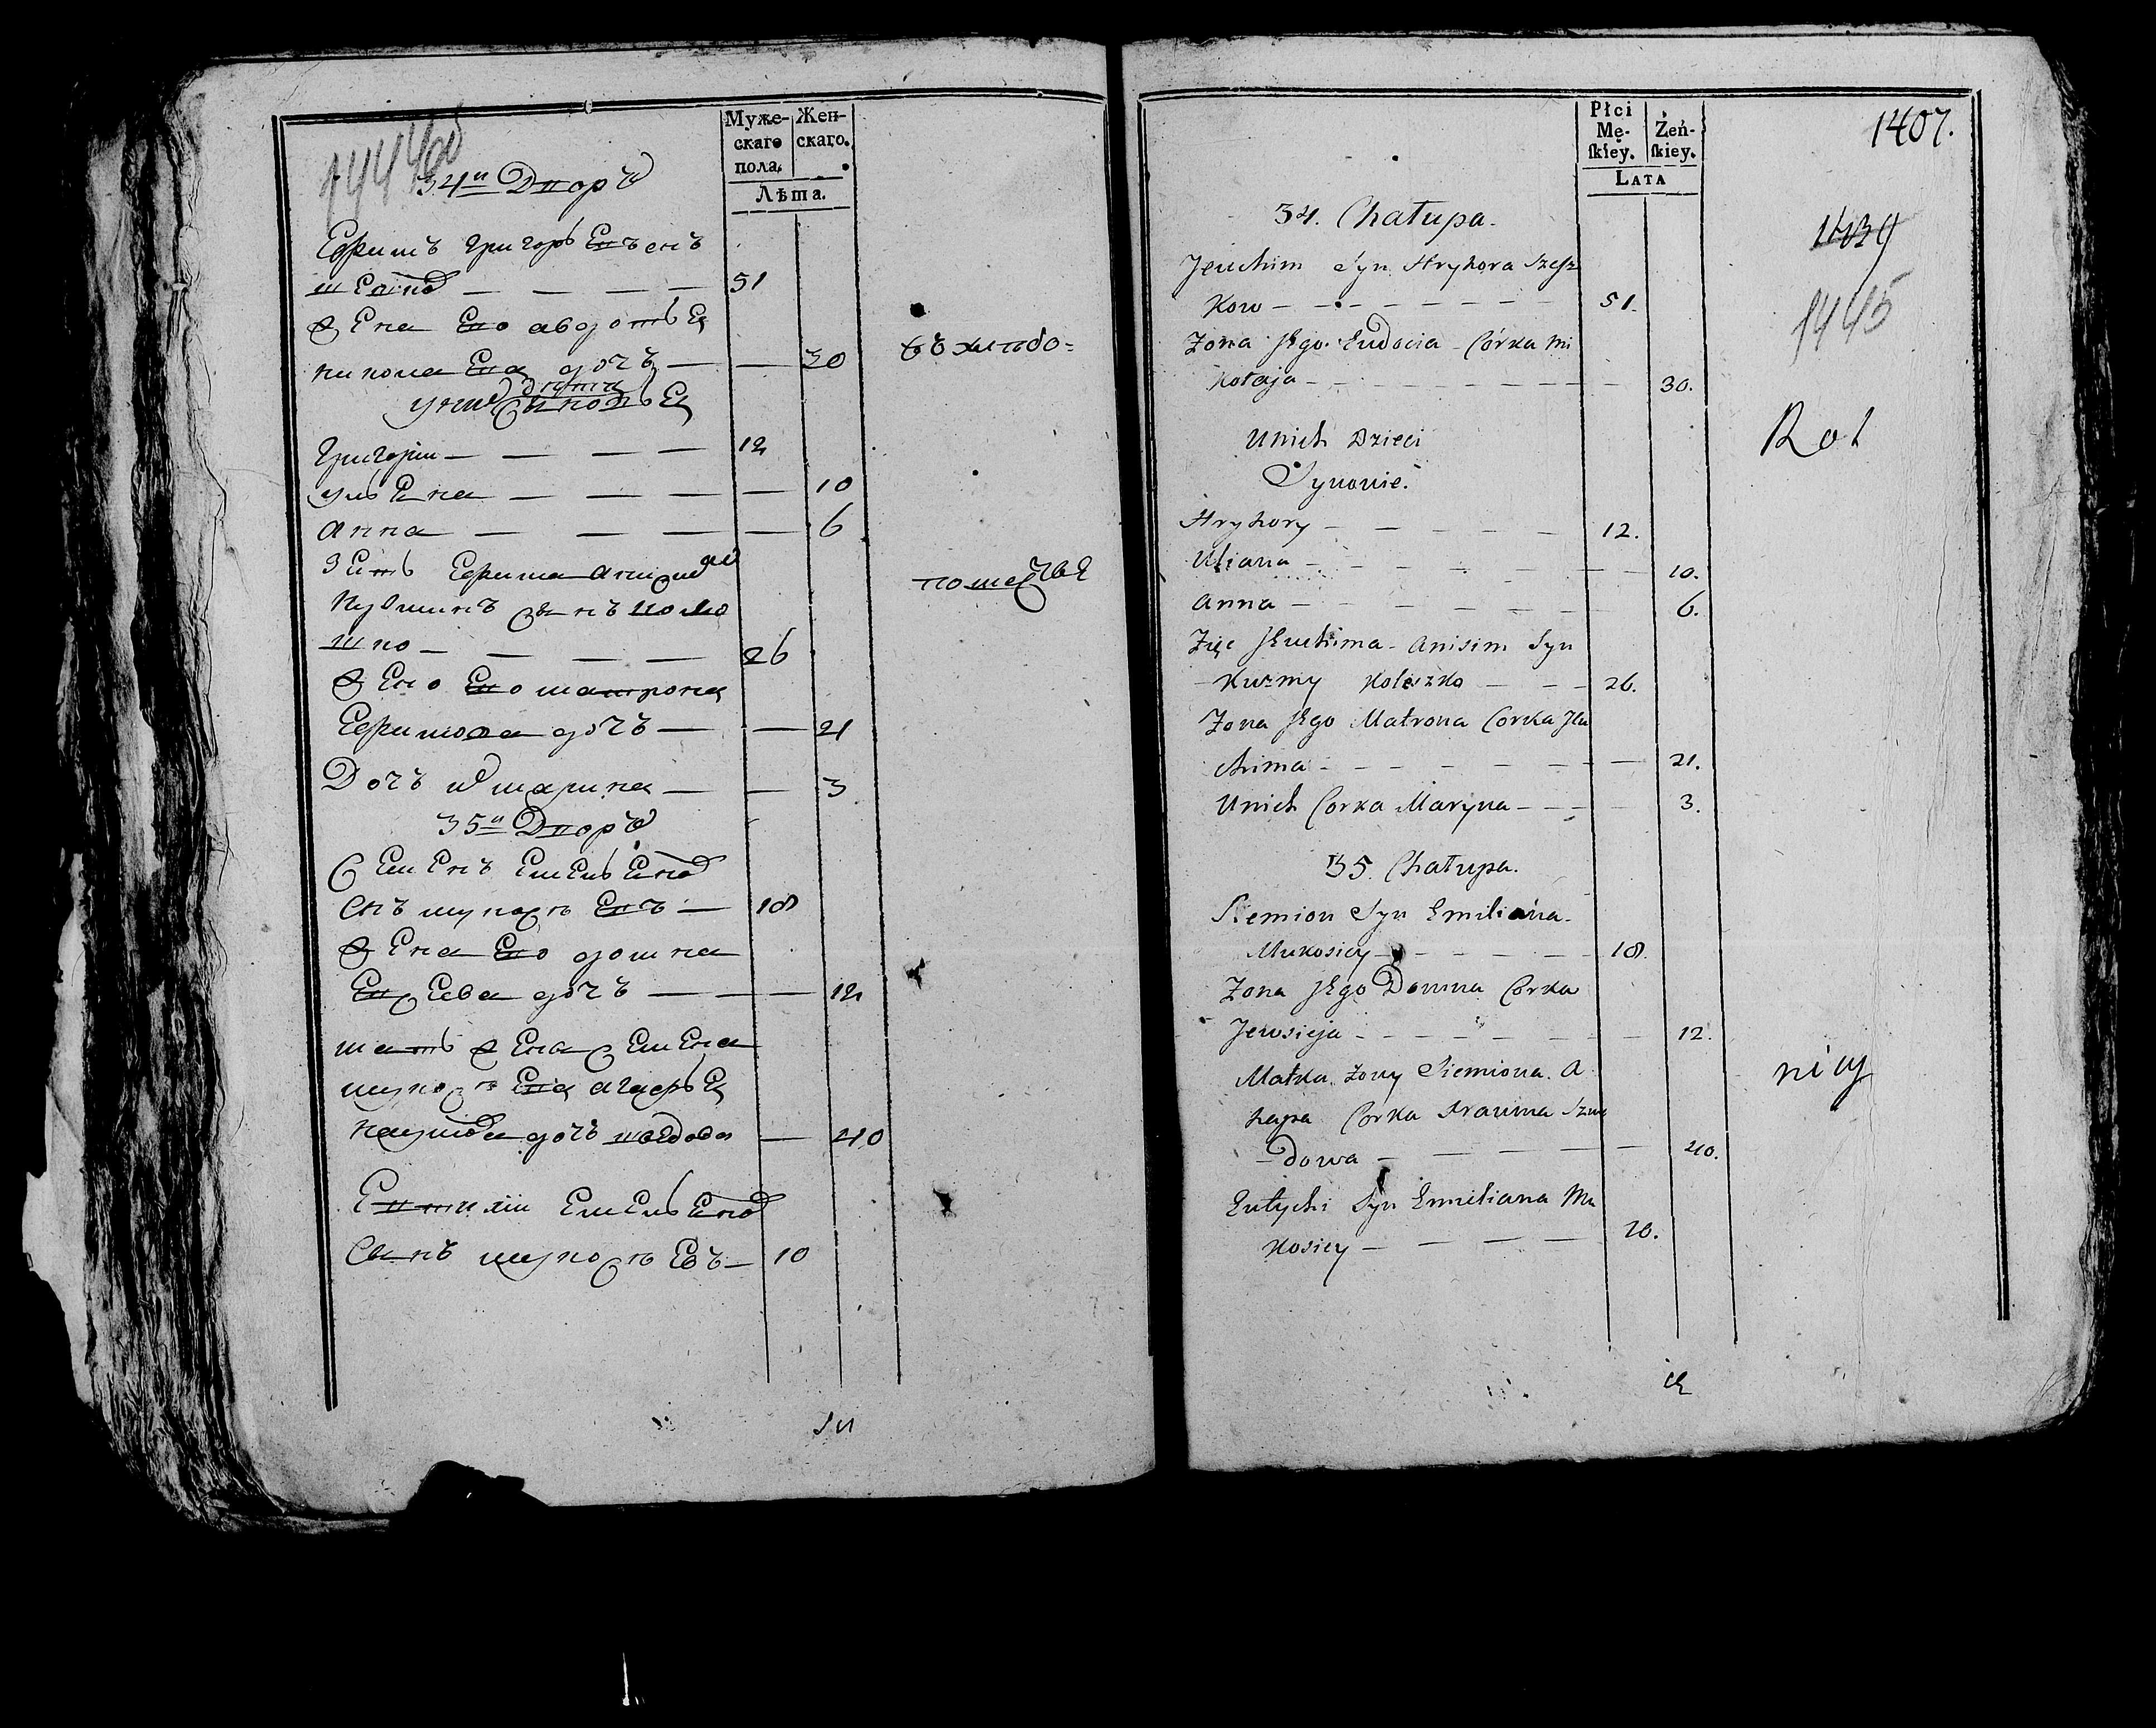 Муже-
скаго
пола.
Жен-
скаго.
Лѣта.
34й Дворъ
Ефимъ Григорьевъ снъ
51
Жена его Авдотья
Никола ева дочъ — — 30
У них дѣти
Григорий — — — — 12
Ульена — — — — — 10
Анна — — — — — 6
Зеть Ефима Анисим
Кузминъ сынъ
— — — — 26
Жена его Матрона
Ефимова дочъ — — 21
Дочъ Марина — — 3
35й Дворъ
Семенъ Емельенов
снъ — 18
Жена его Домна
Евсеева дочъ — — — 12
мать жены Семена
Агафья
Наумова дочъ — 40
Евтихий Емельенов
сынъ — 10
въ хлѣбо=
Płci
Mę-
skiey.
Żeń-
skiey.
LATA
1407.
1439
1445
34. Chałupa.
Jeuchim Syn Hryhora Szesz
kow — — — — — — — 51.
Zona Jego Eudocia Córka Mi
kołaja — — — — — — — — 30.
Unich Dzieci
Synowie.
Hryhory — — — — — 12.
Uliana — — — — — — — 10.
Anna — — — — — — 6.
Zięc Jeuchima Anisim Syn
Kuzmy — — 26.
Zona Jego Matrona Corka Jeu
chima — — — — — — — 21.
Unich Corka Maryna — — — 3.
35. Chałupa.
Siemion Syn Emiliana
Mukosiey — — — — — 18.
Zona Jego Domna Corka
Jewsieja — — — — — — — 12.
Matka żony Siemiona A
hapa Corka
dowa — — — — — 40.
Eutychi Syn Emiliana Mu
kosiey — — — — 10.
Rol
nicy